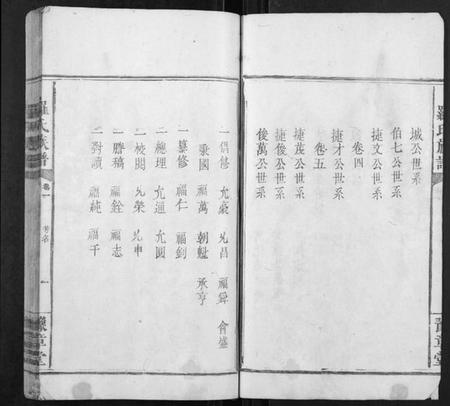 羅氏族譜
城公世系
伯七公世系
捷文公世系
卷四
捷才公世系
卷五
捷茂公世系
捷俊公世系
後萬公世系
豫章堂
一倡修 允豪 允昌 福鋒 會盛
乘國 福萬 朝魁 承亨
一纂修 福仁 福釗
一總理 允通 允圓
一校閱 允榮 允申
一謄稿 福銓 福志
一對讀 福純 福千
羅氏族譜
卷一
一
豫章堂